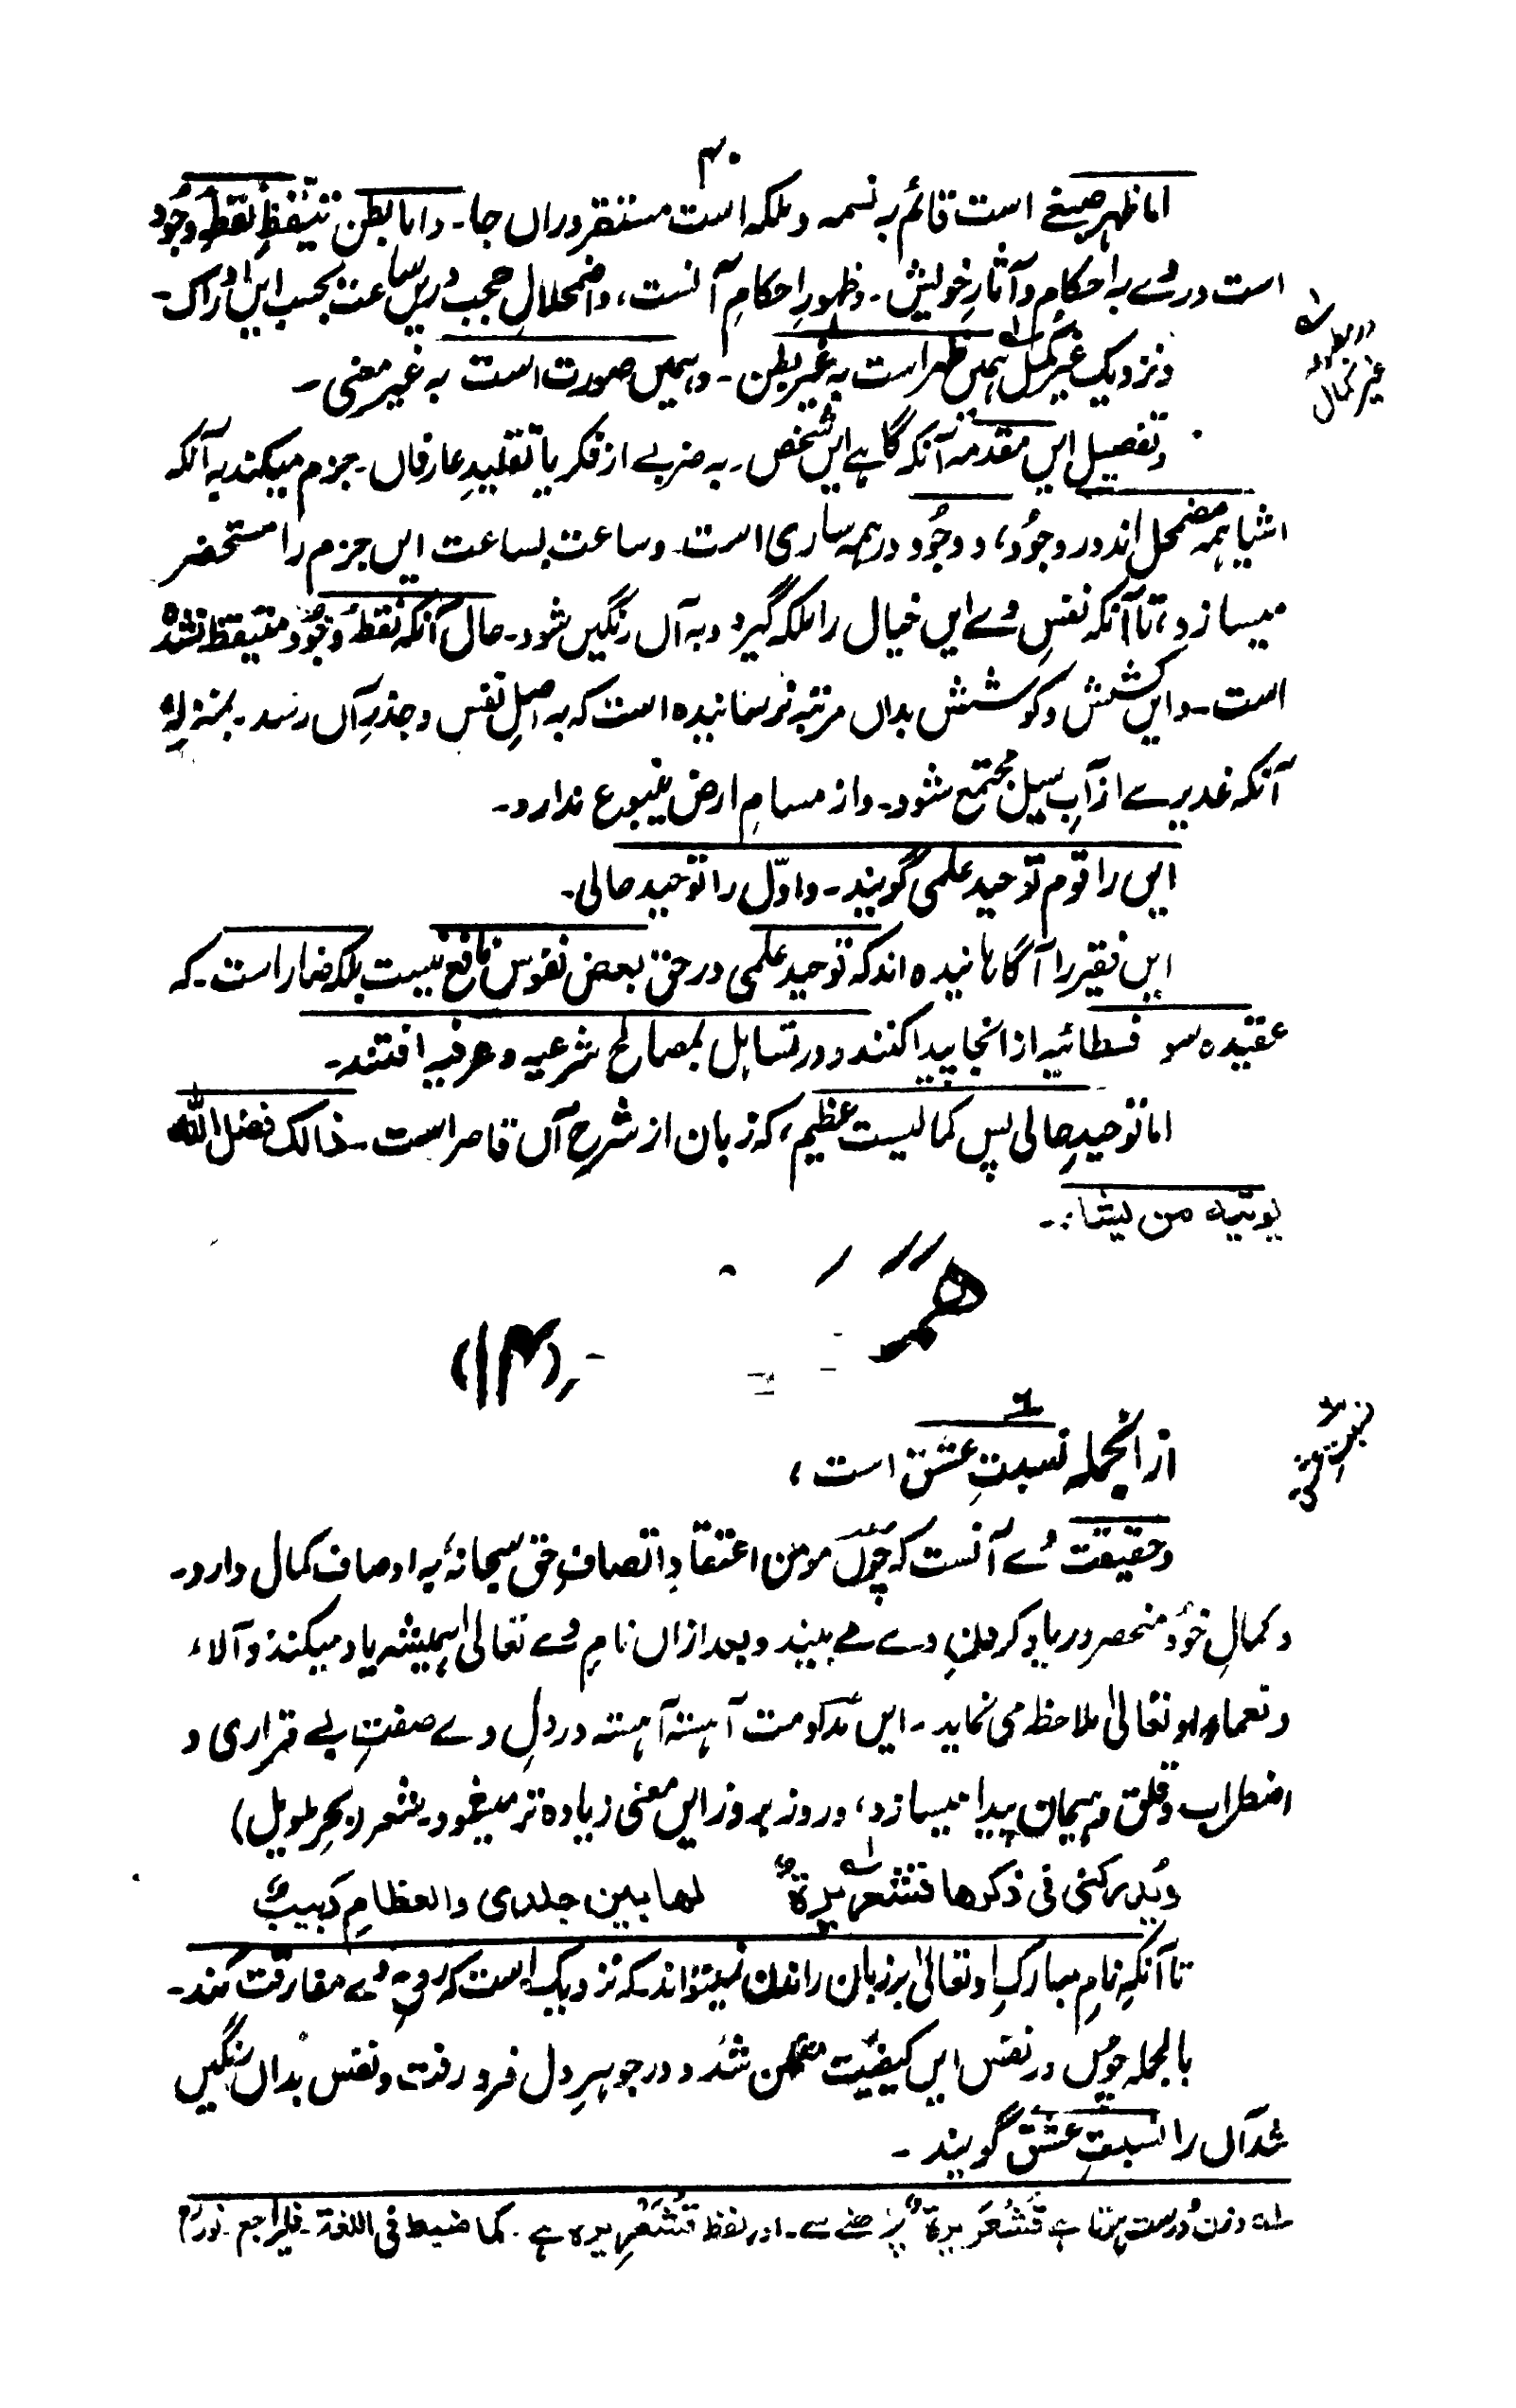 ۴۰
اما ظہر صبغے است قائم بہ نسمہ و ملکہ است مستقر دراں جا۔ و اما بطن تیقظِ نقطہ وجود
است در وے بہ احکام و آثارِ خویش۔ و ظہورِ احکامِ آنست، و اضمحلالِ حجب دریں ساعت بحسب ایں ادراک۔
و نزدیک غیر کمل ہمیں ظہر است بہ غیر بطن۔ و ہمیں صورت است بہ غیر معنی۔
و تفصیل ایں مقدمہ آنکہ گاہے ایں شخص۔ بہ ضربے از فکر یا تقلیدِ عارفاں۔ جزم میکند بہ آنکہ
اشیا ہمہ مضمحل اند در وجود، و وجود در ہمہ ساری است۔ و ساعت بساعت ایں جزم را مستحضر
میسازد، تا آنکہ نفسِ وے ایں خیال را ملکہ گیرد و بہ آں رنگیں شود۔ حال آنکہ نقطہ وجود متیقظ نشدہ
است۔ و ایں کشش و کوشش بداں مرتبہ نرسانیدہ است کہ بہ اصلِ نفس و جذرِ آں رسد۔ بمنزلہٴ
آنکہ غدیرے از آبِ سیل مجتمع شود۔ و از مسامِ ارض ینبوع ندارد۔
ایں را قوم توحید علمی گویند۔ و اوّل را توحید حالی۔
ایں فقیر را آگاہانیدہ اند کہ توحید علمی در حق بعض نفوس نافع نیست بلکہ ضار است۔ کہ
عقیدہ سو فسطائیہ از انجا پیدا کنند و در تساہل بمصالح شرعیہ و عرفیہ افتند۔
اما توحیدِ حالی پس کمالیست عظیم، کہ زبان از شرحِ آں قاصر است۔ ذالک فضل اللہ
یوتیہ من یشاء۔
(۱۴)
از انجملہ نسبتِ عشق است،
و حقیقت وے آنست کہ چوں مومن اعتقادِ اتصافِ حق سبحانہٗ بہ اوصاف کمال دارد۔
و کمالِ خود منحصر در یاد کردنِ وے مے بیند و بعد ازاں نامِ وے تعالیٰ ہمیشہ یاد میکند و آلاء
و نعماء او تعالیٰ ملاحظہ می نماید۔ ایں مداومت آہستہ آہستہ در دلِ وے صفتِ بے قراری و
اضطراب و قلق و ہیمان پیدا میسازد، و روز بروز ایں معنی زیادہ تر میشود۔ شعر (بحر طویل)
ویُدرکنی فی ذکرھا قشعریرۃٌ لھا بین جلدی والعظامِ دَبیبٌ
تا آنکہ نامِ مبارکِ او تعالیٰ بر زبان راندن نمیتواند۔ کہ نزدیک است کہ روحِ وے مفارقت کند۔
بالجملہ چوں در نفس ایں کیفیّت متمکن شد و در جوہرِ دل فرو رفت و نفس بداں رنگیں
شد آں را نسبتِ عشق گویند۔
لہ وزن دُرست ہوتا ہے قُشَعَرِیرۃٌ پڑھنے سے۔ اور لفظ قُشَعْرِیرہ ہے۔ کما ضبط فی اللغۃ۔ فلیراجع۔